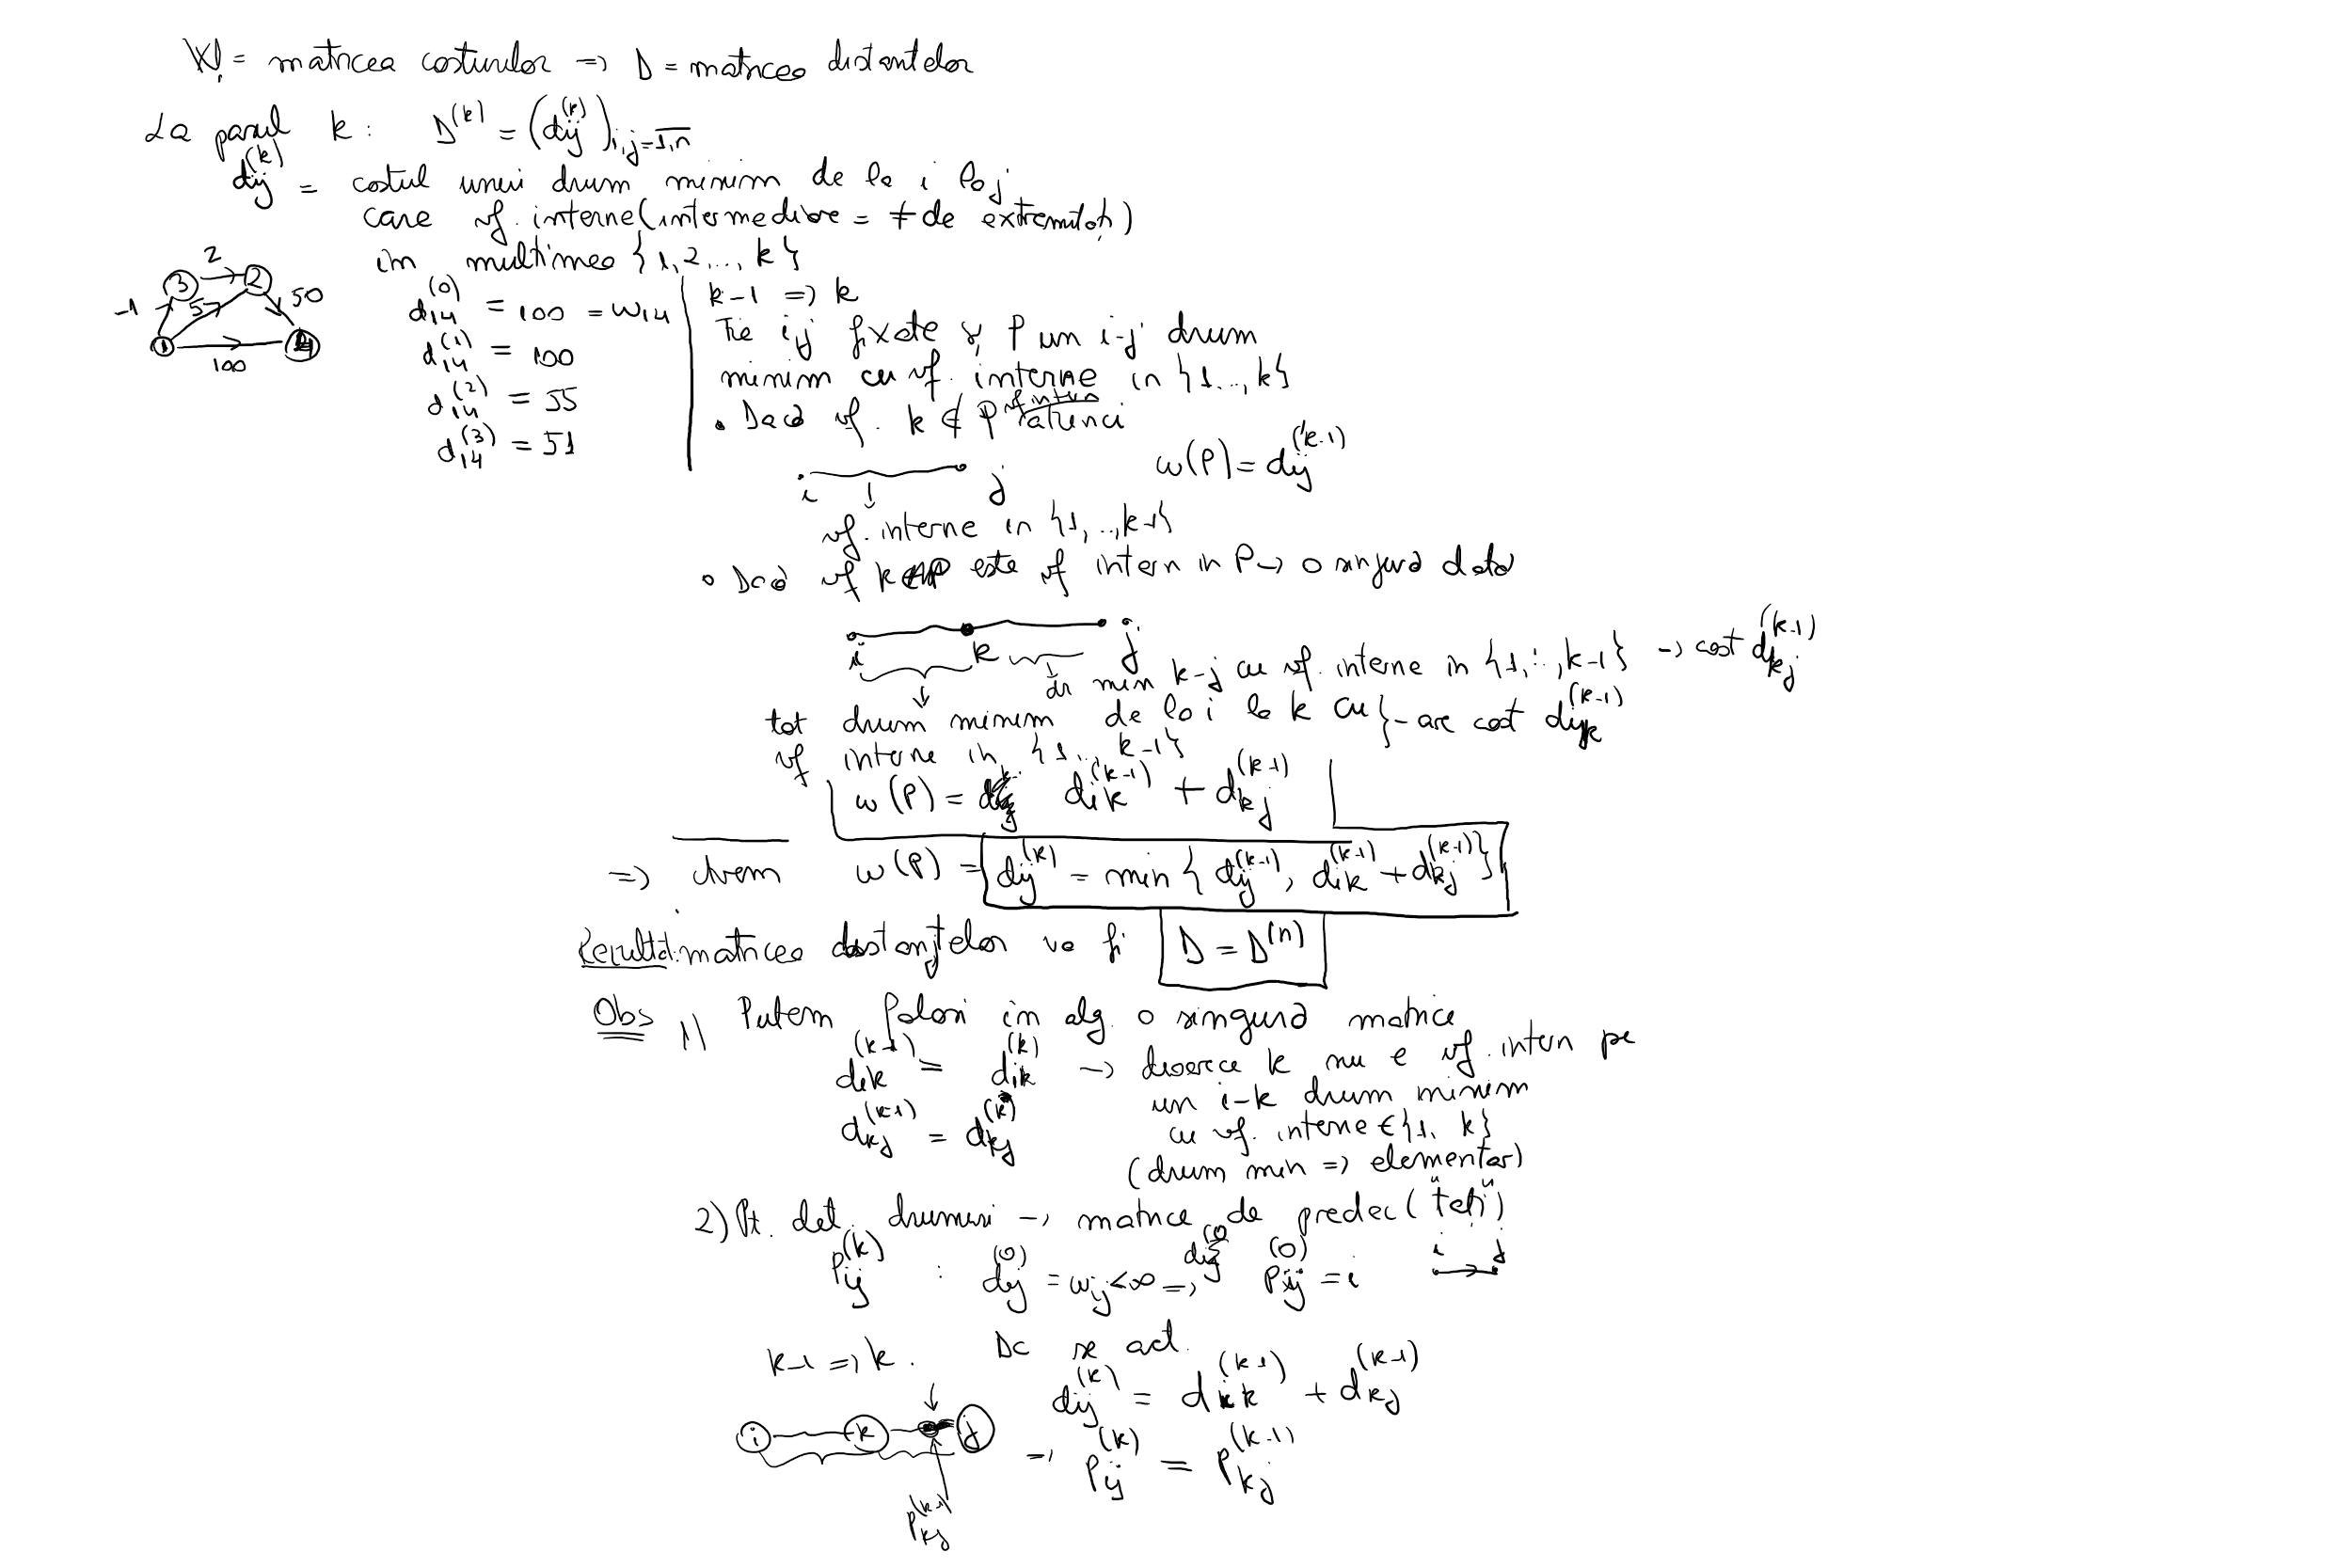 W = matricea costurilor => D = matricea distantelor
La pasul k: D^(k) = (dij^(k)) i,j=1,n
dij^(k) = costul unui drum minim de la i la j
care vf. interne (intermediare = ≠ de extremități)
in multimea {1,2,..., k}
2
3
2
50
-1
5
1
4
100
d14^(0) = 100 = w14
d14^(1) = 100
d14^(2) = 55
d14^(3) = 51
k-1 => k
Fie i,j fixate și P un i-j drum
minim cu vf. interne in {1..., k}
• Dacă vf. k ∉ P vf intern atunci
w(P) = dij^(k-1)
i j
vf. interne in {1, .., k-1}
• Dacă vf k este vf intern in P -> o singură dată
i k j
dr min k-j cu vf. interne in {1, .., k-1} -> cost dkj^(k-1)
tot drum minim de la i la k cu } - are cost dik^(k-1)
vf interne in {1..., k-1}
w(P) = dik^(k-1) + dkj^(k-1)
=> Avem w(P) = dij^(k) = min { dij^(k-1), dik^(k-1) + dkj^(k-1) }
Rezultă: matricea distanțelor va fi D = D^(n)
Obs 1) Putem folosi în alg. o singură matrice
dik^(k-1) = dik^(k) -> deoarece k nu e vf. intern pe
un i-k drum minim
dkj^(k-1) = dkj^(k) cu vf. interne ∈ {1, k}
(drum min => elementar)
2) Pt. det. drumuri -> matrice de predec ("tați")
pij^(k) : dij^(0) = wij < ∞ => pij^(0) = i
i j
k-1 => k. Dc se act.
dij^(k) = dik^(k-1) + dkj^(k-1)
i k j
=> pij^(k) = pkj^(k-1)
pkj^(k-1)